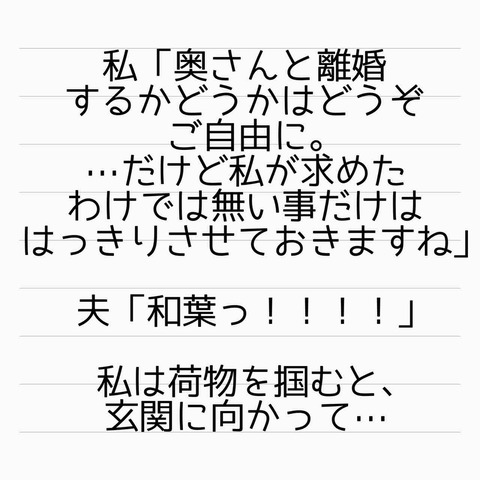 私「奥さんと離婚
するかどうかはどうぞ
ご自由に。
…だけど私が求めた
わけでは無い事だけは
はっきりさせておきますね」
夫「和葉っ！！！！」
私は荷物を掴むと、
玄関に向かって…